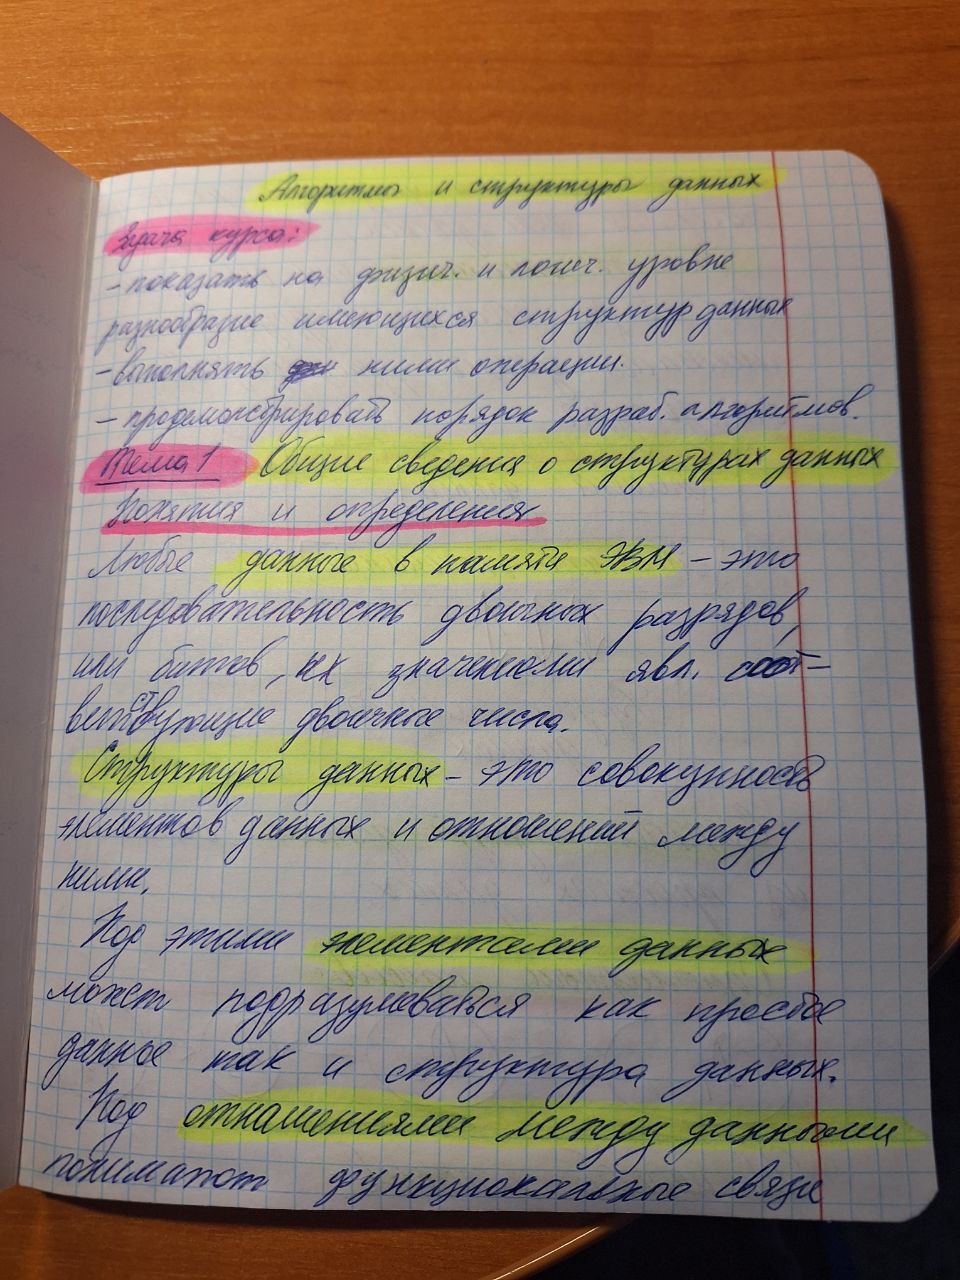 Алгоритмы и структуры данных
Задача курса:
- показать на физич. и логич. уровне
разнообразие имеющихся структур данных
- выполнять ними операции.
- продемонстрировать порядок разраб. алгоритмов.
Тема 1 Общие сведения о структурах данных
Понятия и определения
Любые данные в памяти ЭВМ - это
последовательность двоичных разрядов,
или битов, их значениями явл. соот-
ветствующие двоичные числа.
Структуры данных - это совокупность
элементов данных и отношений между
ними.
Под этими элементами данных
может подразумеваться как простое
данное так и структура данных.
Под отношениями между данными
понимают функциональные связи